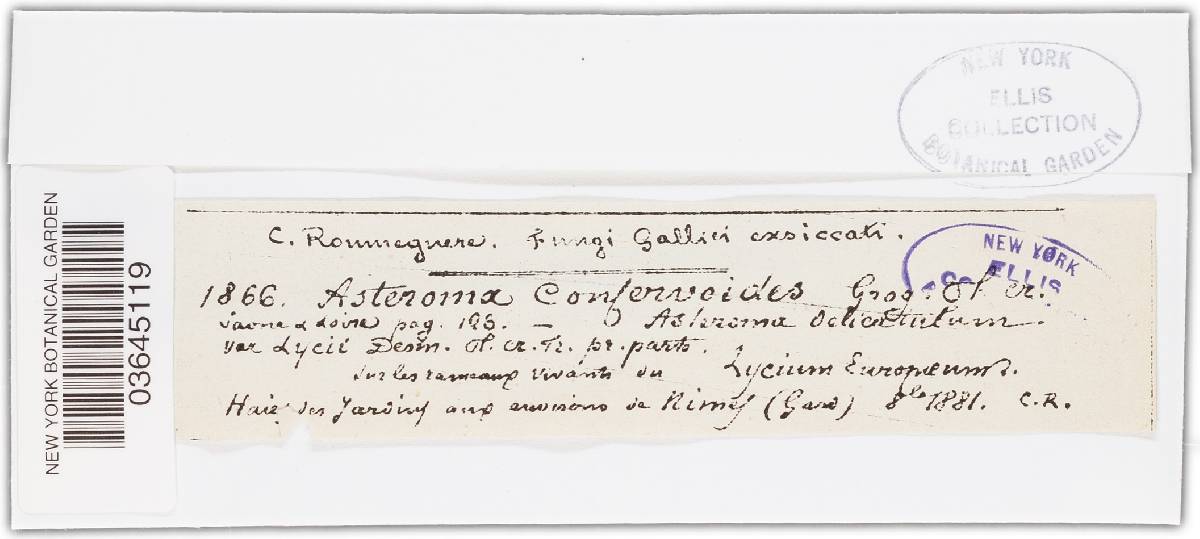 NEW YORK
ELLIS
COLLECTION
BOTANICAL GARDEN
NEW YORK BOTANICAL GARDEN
03645119
C. Roumeguere. Fungi Gallici exsiccati.
NEW YORK
ELLIS
1866. Asteroma Confervoides Grog. Pl. cr.
Saone & Loire pag. 195. — Asteroma delicatulum
var Lycii Desm. Pl. cr. Fr. pr. parte.
Sur les rameaux vivants du Lycium Europæum L.
Haie des Jardins aux environs de Nimes (Gard) 8bre 1881. C.R.